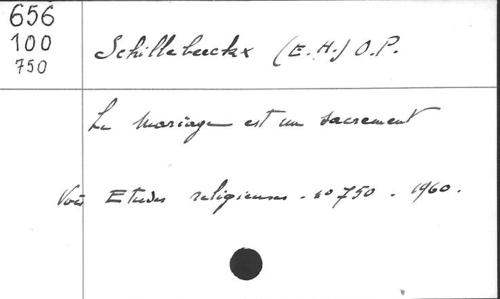 656
100
750
Schillebeeckx (E.H.) O.P.
Le mariage est un sacrement
Voir Etudes religieuses - n° 750 - 1960.